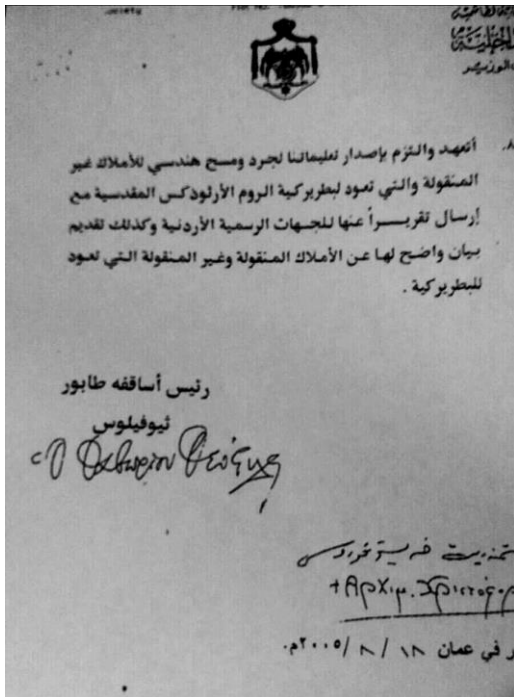 الداخلية
الوزير
٨. أتعهد والتزم بإصدار تعليماتنا لجرد ومسح هندسي للأملاك غير
المنقولة والتي تعود لبطريركية الروم الأرثوذكس المقدسية مع
إرسال تقريراً عنها للجهات الرسمية الأردنية وكذلك تقديم
بيان واضح لها عن الأملاك المنقولة وغير المنقولة التي تعود
للبطريركية .
رئيس أساقفه طابور
ثيوفيلوس
ὁ Θαβωρίου Θεόφιλος
+Αρχιμ. Χριστόφορ
ر في عمان ١٨ /٨ /٢٠٠٥م.